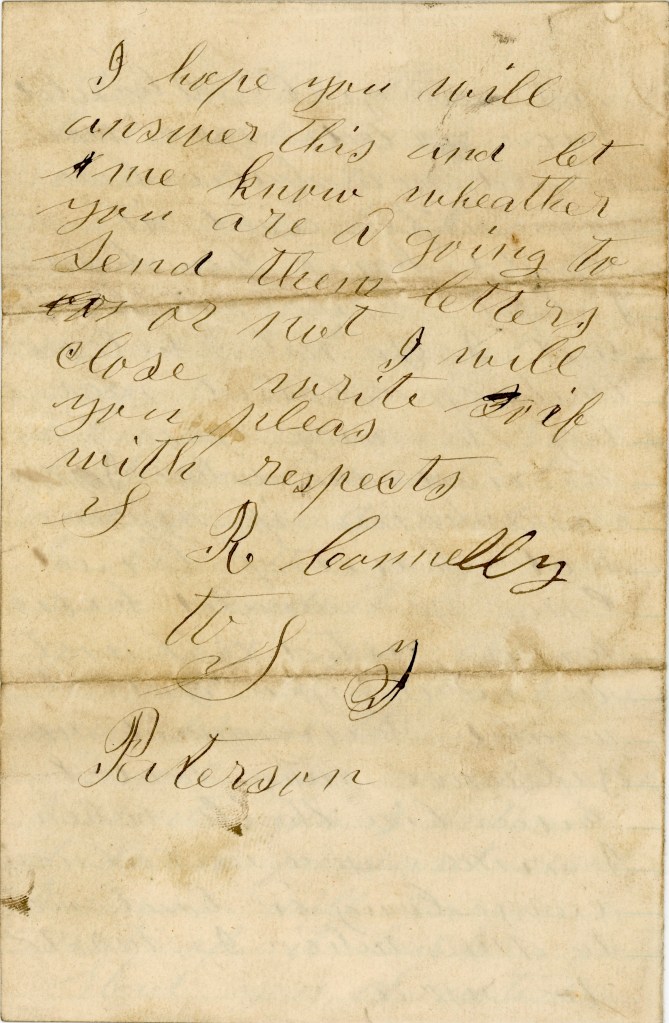 I hope you will
answer this and let
me know wheather
you are a going to
send them letters
or not I will
close write if
you pleas
with respects
S R Connelly
to
S
Peterson